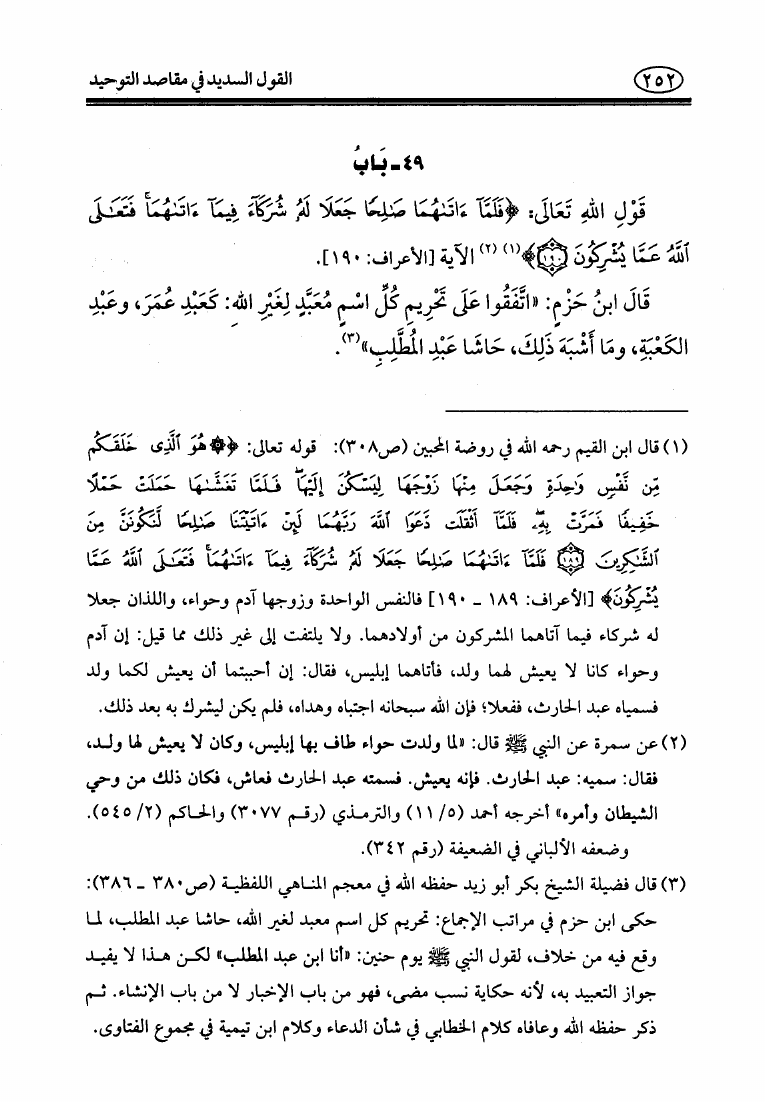 ٢٥٢ القول السديد في مقاصد التوحيد
٤٩ـ بَابُ
قَوْلِ اللهِ تَعَالَى: ﴿فَلَمَّآ ءَاتَىٰهُمَا صَٰلِحًا جَعَلَا لَهُۥ شُرَكَآءَ فِيمَآ ءَاتَىٰهُمَاۚ فَتَعَٰلَى
ٱللَّهُ عَمَّا يُشْرِكُونَ ١٩٠﴾(١)(٢) الآية [الأعراف: ١٩٠].
قَالَ ابنُ حَزْمٍ: «اتَّفَقُوا عَلَى تَحْرِيمِ كُلِّ اسْمٍ مُعَبَّدٍ لِغَيْرِ اللهِ: كَعَبْدِ عُمَرَ، وعَبْدِ
الكَعْبَةِ، ومَا أَشْبَهَ ذَلِكَ، حَاشَا عَبْدِ المُطَّلِبِ»(٣).
(١) قال ابن القيم رحمه الله في روضة المحبين (ص٣٠٨): قوله تعالى: ﴿۞هُوَ ٱلَّذِى خَلَقَكُم
مِّن نَّفْسٍ وَٰحِدَةٍ وَجَعَلَ مِنْهَا زَوْجَهَا لِيَسْكُنَ إِلَيْهَاۖ فَلَمَّا تَغَشَّىٰهَا حَمَلَتْ حَمْلًا
خَفِيفًا فَمَرَّتْ بِهِۦۖ فَلَمَّآ أَثْقَلَت دَّعَوَا ٱللَّهَ رَبَّهُمَا لَئِنْ ءَاتَيْتَنَا صَٰلِحًا لَّنَكُونَنَّ مِنَ
ٱلشَّٰكِرِينَ ١٨٩ فَلَمَّآ ءَاتَىٰهُمَا صَٰلِحًا جَعَلَا لَهُۥ شُرَكَآءَ فِيمَآ ءَاتَىٰهُمَاۚ فَتَعَٰلَى ٱللَّهُ عَمَّا
يُشْرِكُونَ﴾ [الأعراف: ١٨٩ ـ ١٩٠] فالنفس الواحدة وزوجها آدم وحواء، واللذان جعلا
له شركاء فيما آتاهما المشركون من أولادهما. ولا يلتفت إلى غير ذلك مما قيل: إن آدم
وحواء كانا لا يعيش لهما ولد، فأتاهما إبليس، فقال: إن أحببتما أن يعيش لكما ولد
فسمياه عبد الحارث، ففعلا؛ فإن الله سبحانه اجتباه وهداه، فلم يكن ليشرك به بعد ذلك.
(٢) عن سمرة عن النبي ﷺ قال: «لما ولدت حواء طاف بها إبليس، وكان لا يعيش لها ولد،
فقال: سميه: عبد الحارث. فإنه يعيش. فسمته عبد الحارث فعاش، فكان ذلك من وحي
الشيطان وأمره» أخرجه أحمد (٥/ ١١) والترمذي (رقم ٣٠٧٧) والحاكم (٢/ ٥٤٥).
وضعفه الألباني في الضعيفة (رقم ٣٤٢).
(٣) قال فضيلة الشيخ بكر أبو زيد حفظه الله في معجم المناهي اللفظية (ص٣٨٠ ـ ٣٨٦):
حكى ابن حزم في مراتب الإجماع: تحريم كل اسم معبد لغير الله، حاشا عبد المطلب، لما
وقع فيه من خلاف، لقول النبي ﷺ يوم حنين: «أنا ابن عبد المطلب» لكن هذا لا يفيد
جواز التعبيد به، لأنه حكاية نسب مضى، فهو من باب الإخبار لا من باب الإنشاء. ثم
ذكر حفظه الله وعافاه كلام الخطابي في شأن الدعاء وكلام ابن تيمية في مجموع الفتاوى.